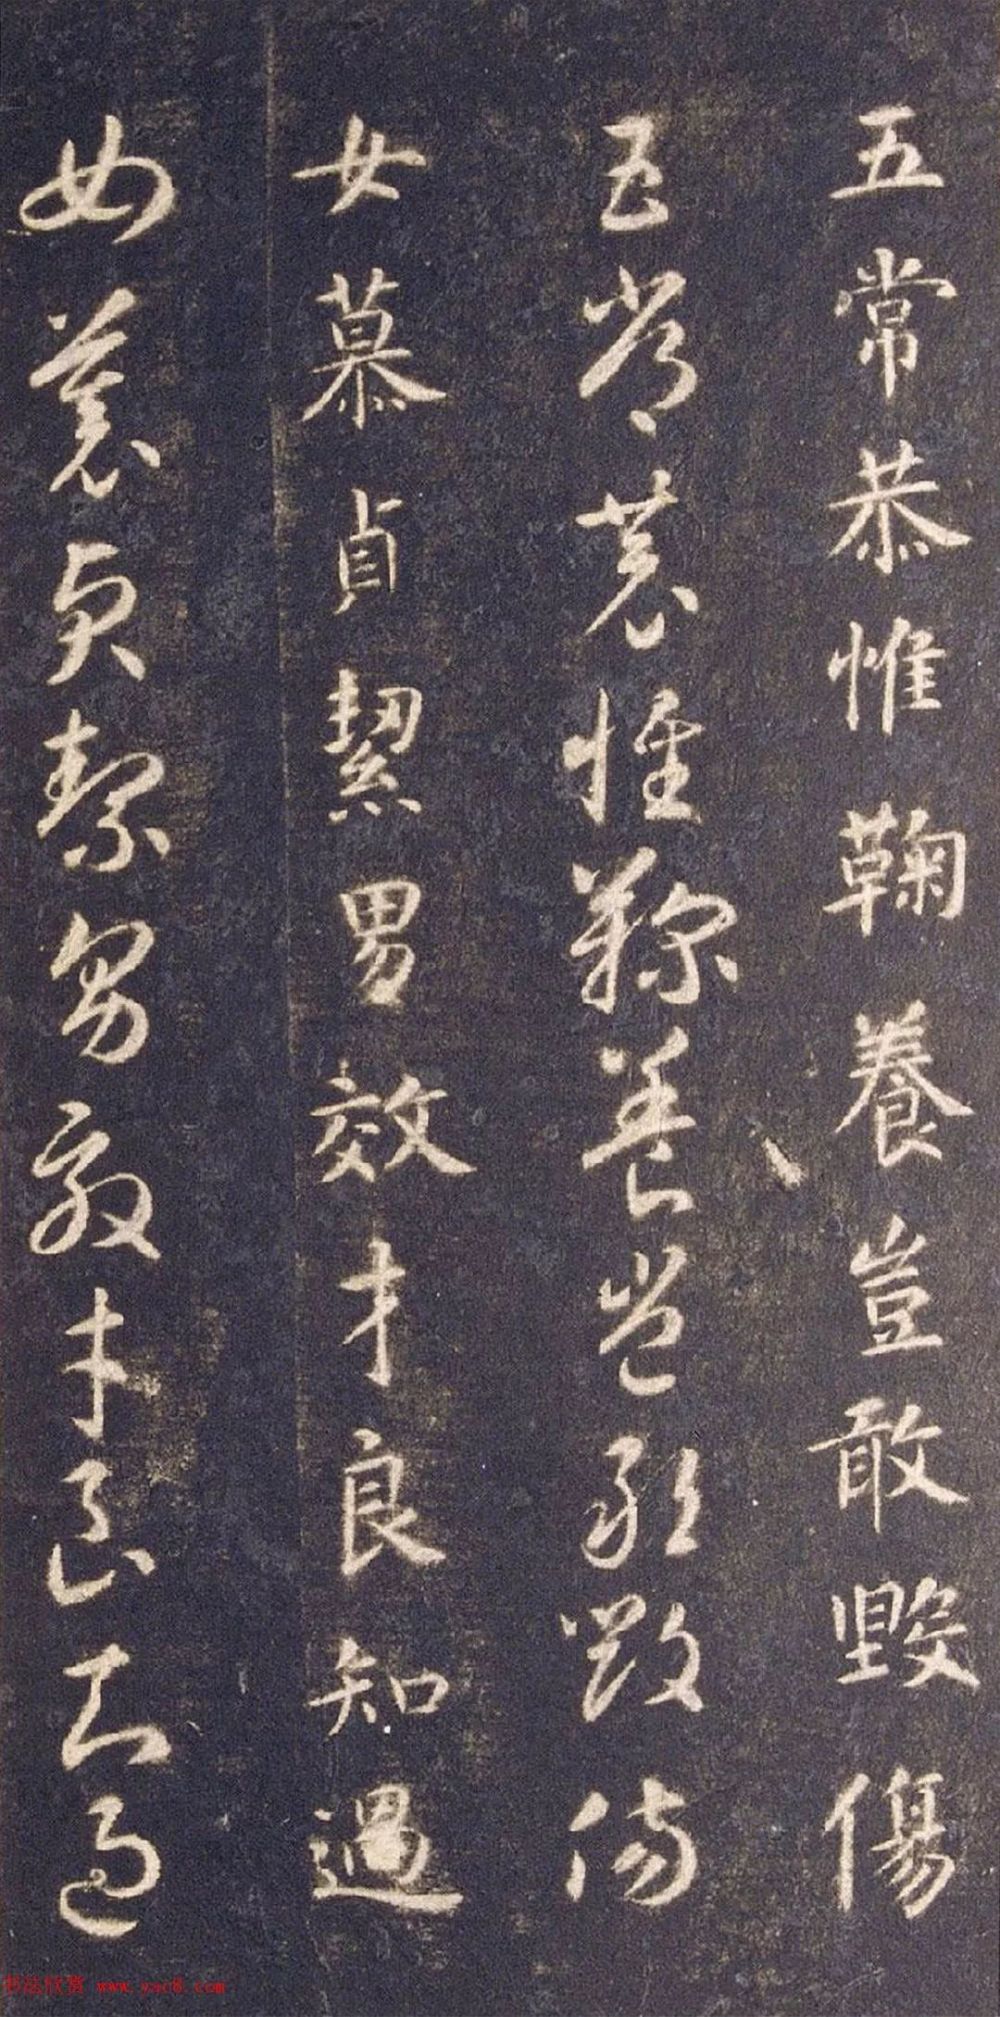 五常恭惟鞠養豈敢毀傷
五常恭惟鞠養豈敢毀傷
女慕貞絜男效才良知過
女慕貞絜男效才良知過
书法欣赏 www.yac8.com